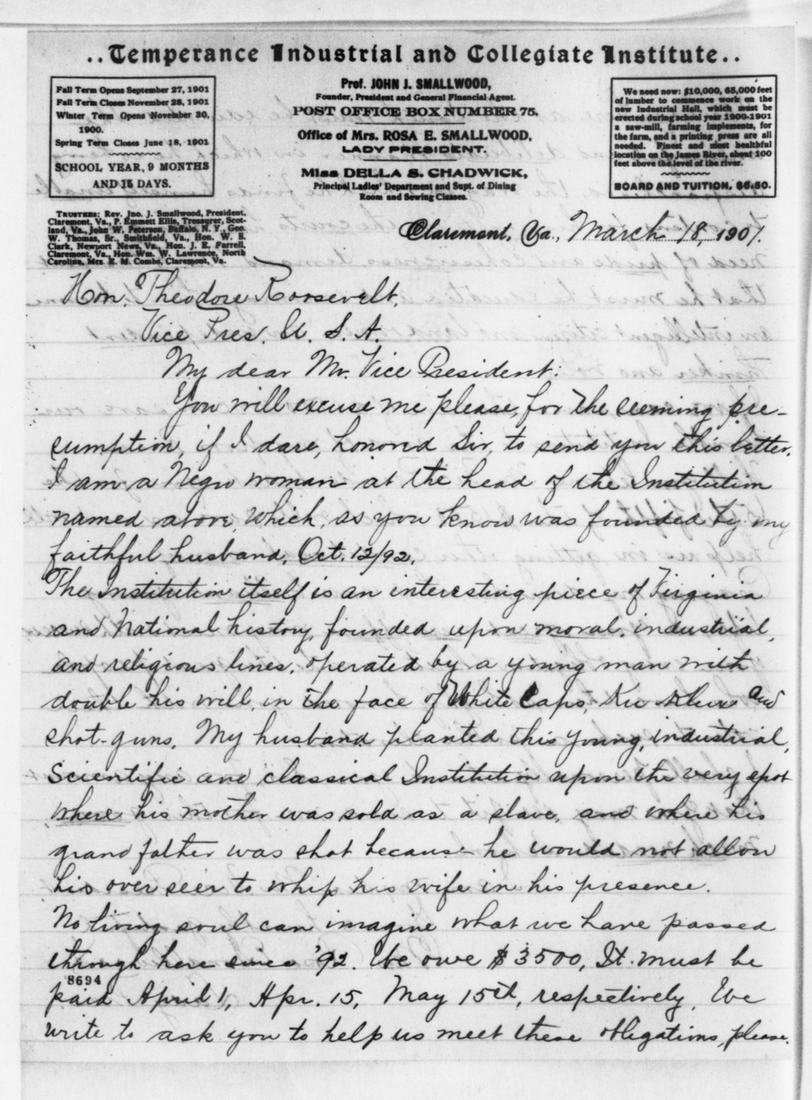 ..Temperance Industrial and Collegiate Institute..
Fall Term Opens September 27, 1901
Fall Term Closes November 28, 1901
Winter Term Opens November 30,
1900.
Spring Term Closes June 18, 1901
SCHOOL YEAR, 9 MONTHS
AND 15 DAYS.
Prof. JOHN J. SMALLWOOD,
Founder, President and General Financial Agent.
POST OFFICE BOX NUMBER 75.
Office of Mrs. ROSA E. SMALLWOOD,
LADY PRESIDENT.
Miss DELLA S. CHADWICK,
Principal Ladies' Department and Supt. of Dining
Room and Sewing Classes.
We need now: $10,000, 65,000 feet
of lumber to commence work on the
new Industrial Hall, which must be
erected during school year 1900-1901
a saw-mill, farming implements, for
the farm, and a printing press are all
needed. Finest and most healthful
location on the James River, about 100
feet above the level of the river.
BOARD AND TUITION, $6.50.
TRUSTEES: Rev. Jno. J. Smallwood, President,
Claremont, Va., P. Emmett Ellis, Treasurer, Scot-
land, Va., John W. Peterson, Buffalo, N. Y., Geo.
W. Thomas, Sr., Smithfield, Va., Hon. W. E.
Clark, Newport News, Va., Hon. J. E. Farrell,
Claremont, Va., Hon. Wm. W. Lawrence, North
Carolina, Mrs. E. M. Combs, Claremont, Va.
Claremont, Va., March 18, 1901.
Hon. Theodore Roosevelt,
Vice Pres. U. S. A.
My dear Mr. Vice President:
You will excuse me please, for the seeming pre-
sumption, if I dare, honored Sir, to send you this letter.
I am a Negro woman at the head of the Institution
named above, which, as you know was founded by my
faithful husband, Oct. 12/92.
The Institution itself is an interesting piece of Virginia
and National history, founded upon moral, industrial,
and religious lines, operated by a young man with
double his will, in the face of White Caps, Ku Klux and
shot-guns. My husband planted this young, industrial,
Scientific and classical Institution upon the very spot
where his mother was sold as a slave, and where his
grand father was shot because he would not allow
his over seer to whip his wife in his presence.
No living soul can imagine what we have passed
through here since '92. We owe $3500, It must be
8694
paid April 1, Apr. 15, May 15th, respectively. We
write to ask you to help us meet these obligations, please.